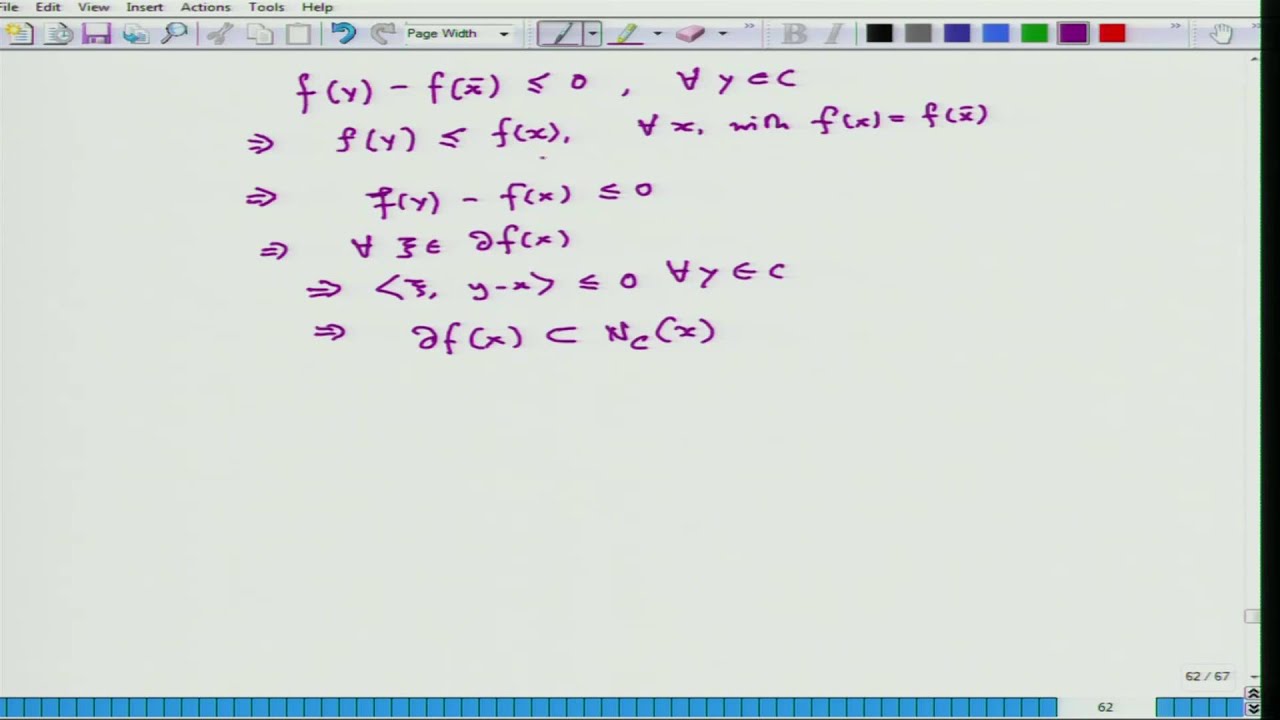 File Edit View Insert Actions Tools Help
Page Width
B I
f(y) - f(x̄) ≤ 0 , ∀ y ∈ C
⇒ f(y) ≤ f(x), ∀ x, with f(x) = f(x̄)
⇒ f(y) - f(x) ≤ 0
⇒ ∀ ξ ∈ ∂f(x)
⇒ <ξ, y-x> ≤ 0 ∀ y ∈ C
⇒ ∂f(x) ⊂ N_C(x)
62 / 67
62